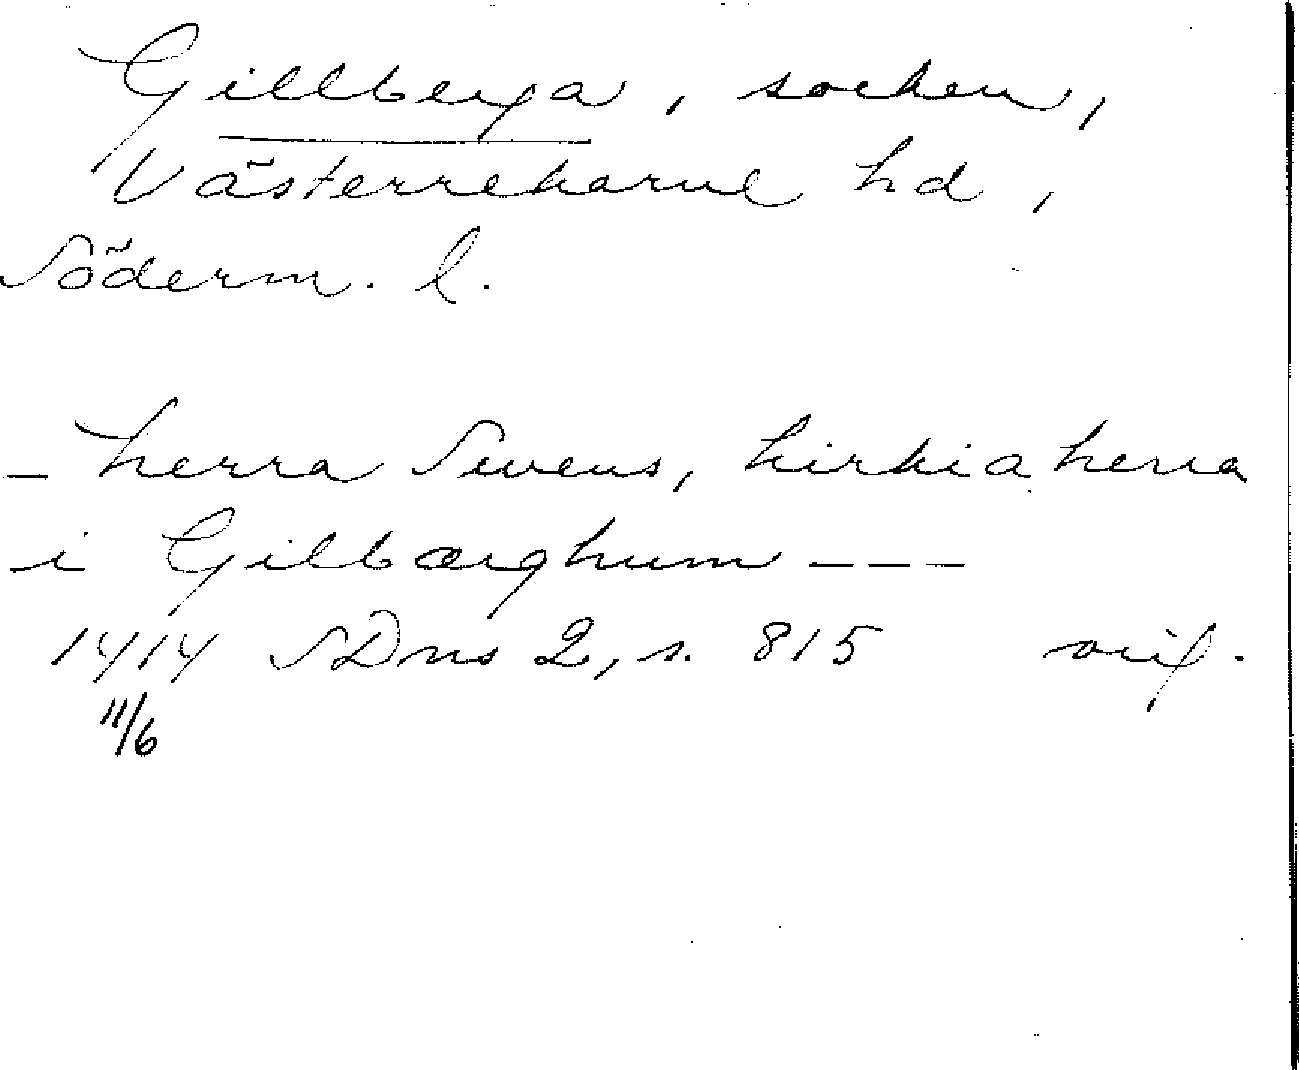 Gillberga, socken,
Västerrekarne hd,
Söderm. l.
- herra Swens, kirkia herra
i Gilbærghum ---
1414 SDns 2, s. 815 orig.
11/6